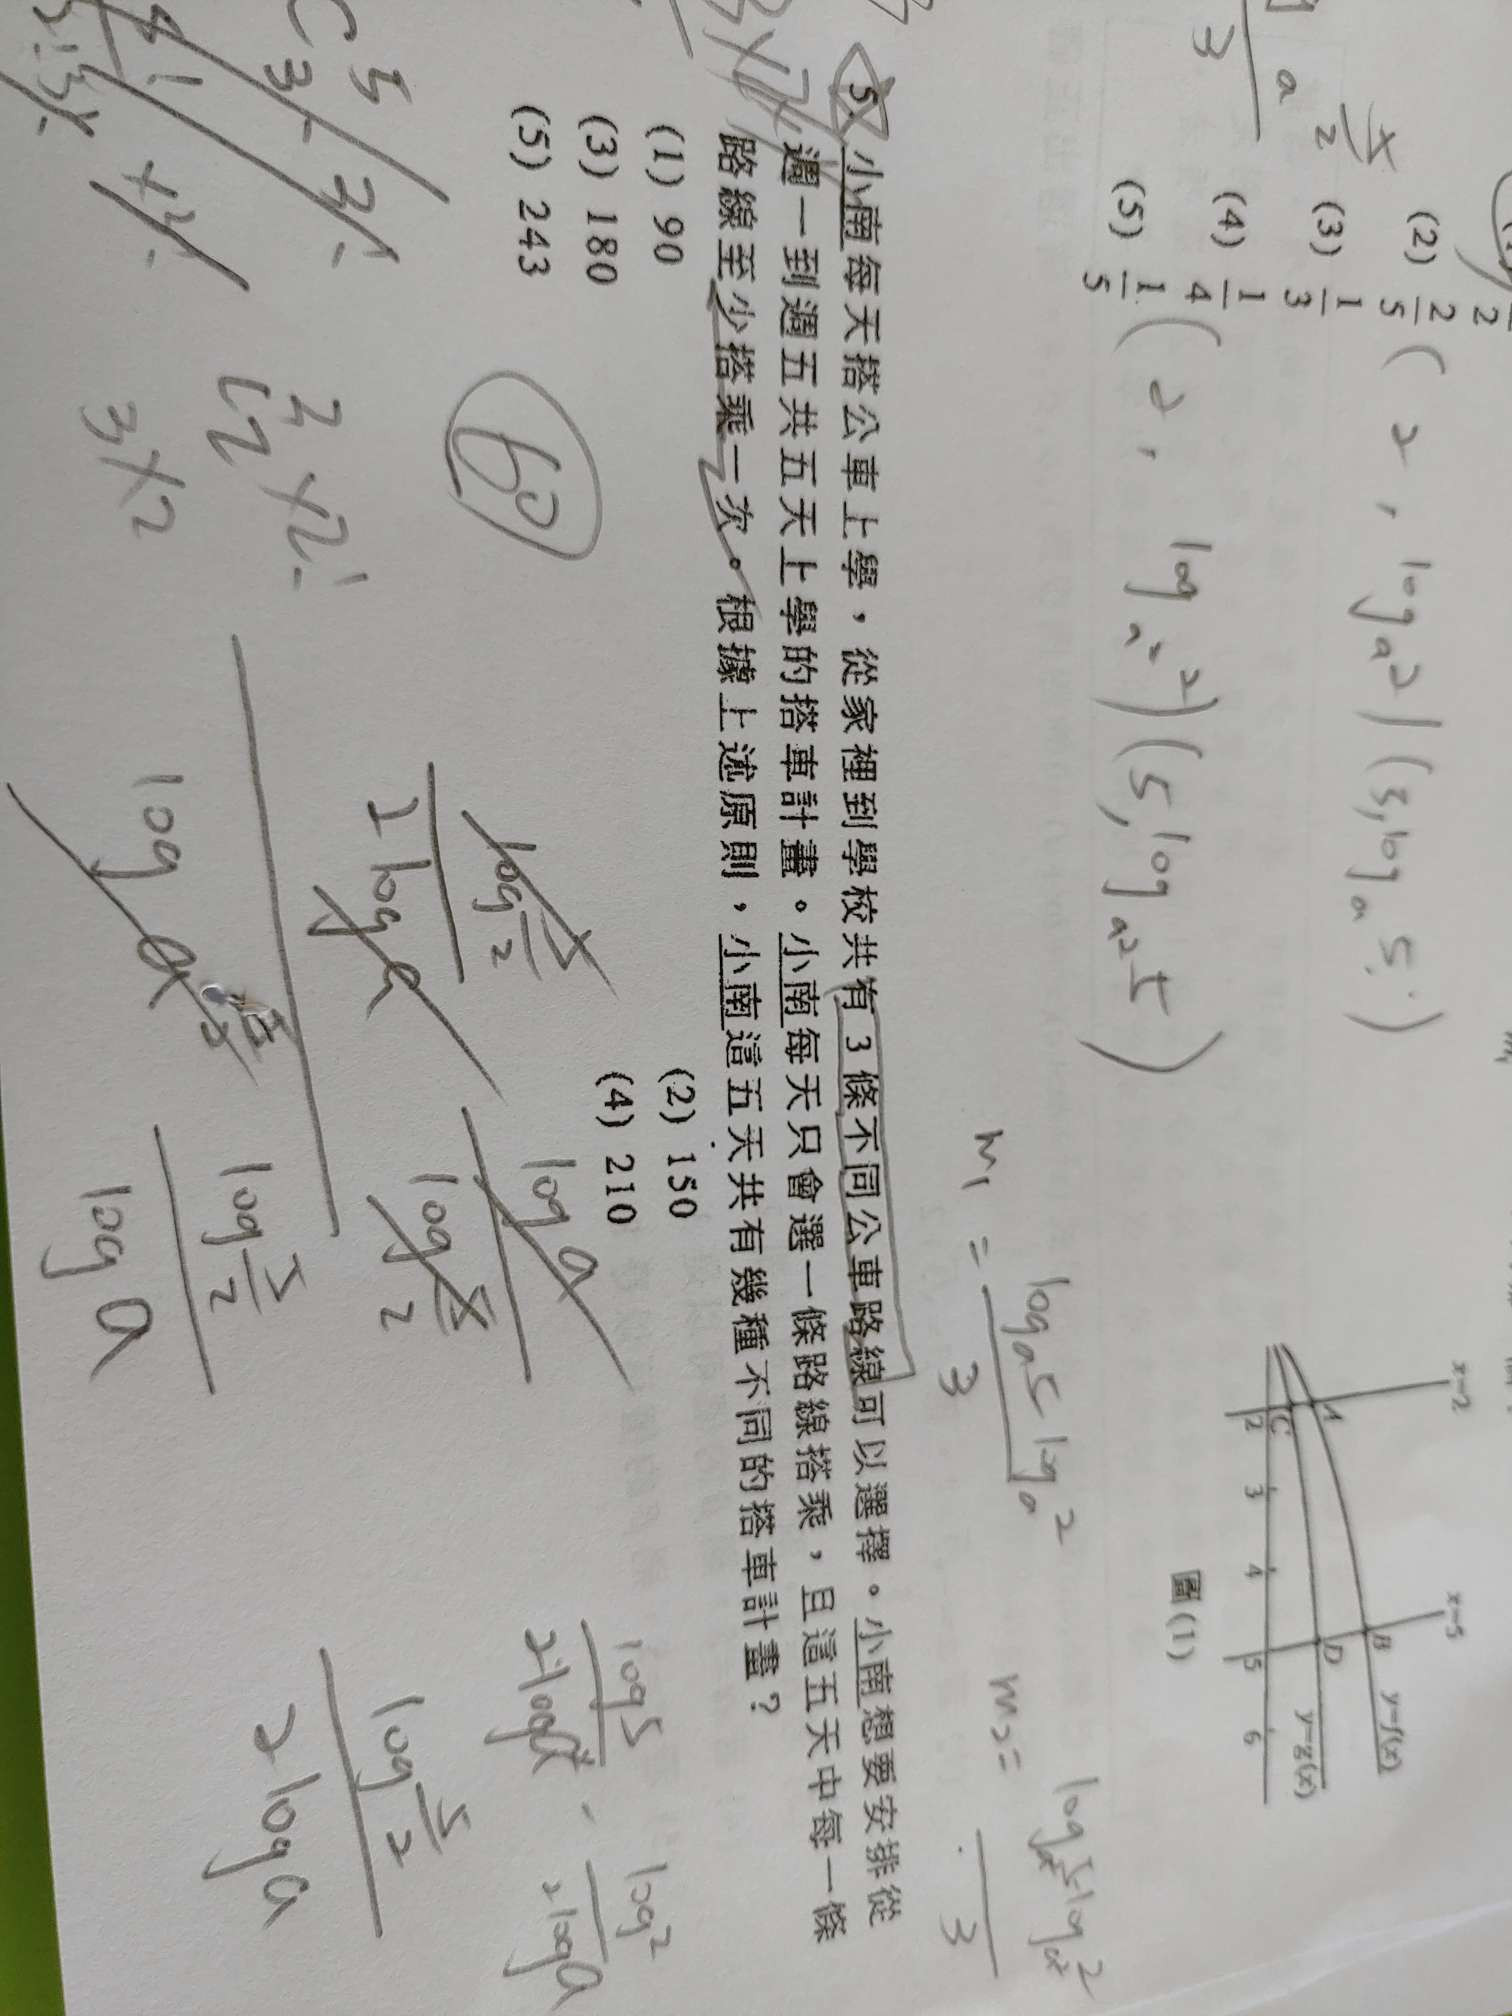 (2) 2/5
(3) 1/3
(4) 1/4
(5) 1/5
a
3
(2, log a 2) (5, log a 5)
(2, log a² 2) (5, log a² 5)
x=2
x=5
A
B
C
D
2 3 4 5 6
y=f(x)
y=g(x)
圖(1)
m₁ = log a 5 log a 2 / 3
m₂ = log a² 5 - log a² 2 / 3
5. 小南每天搭公車上學，從家裡到學校共有3條不同公車路線可以選擇。小南想要安排從
週一到週五共五天上學的搭車計畫。小南每天只會選一條路線搭乘，且這五天中每一條
路線至少搭乘一次。根據上述原則，小南這五天共有幾種不同的搭車計畫？
(1) 90
(2) 150
(3) 180
(4) 210
(5) 243
60
3×2
log 5/2
2 log a
log a
log 5/2
log a
log 5/2
log a
log 5 / 2 log a - log 2 / 2 log a
log 5/2
2 log a